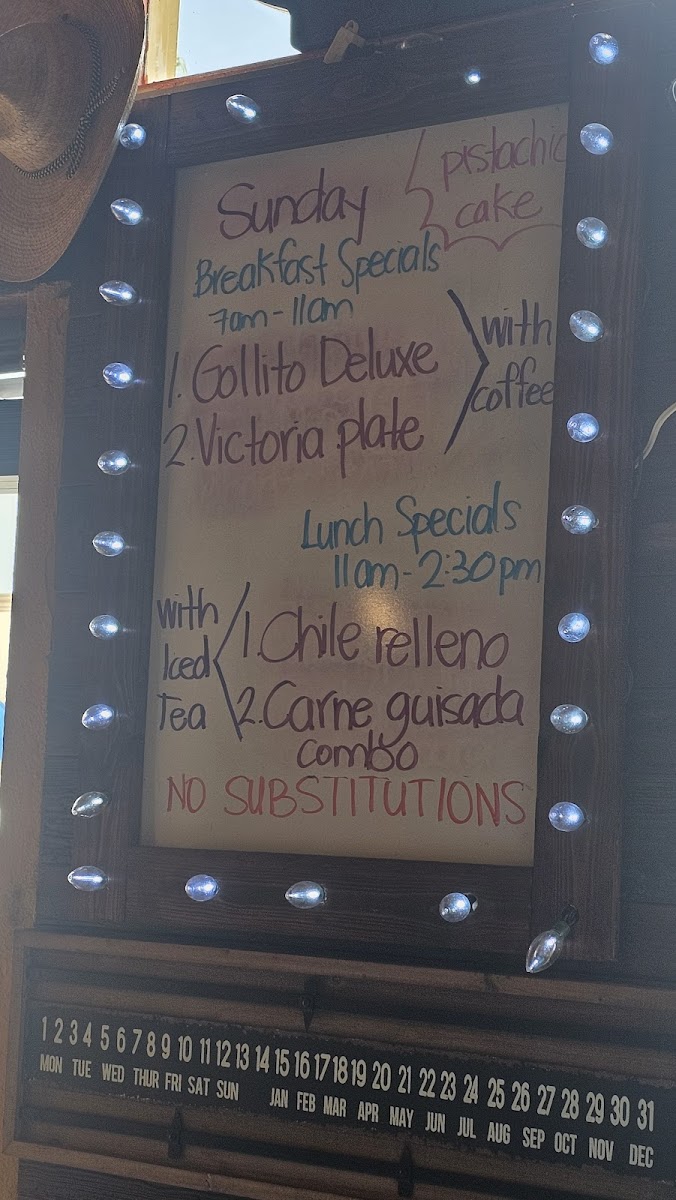 Sunday
pistachio
cake
Breakfast Specials
7am-11am
1. Gollito Deluxe
2. Victoria plate
with
coffee
Lunch Specials
11am-2:30pm
with
Iced
Tea
1. Chile relleno
2. Carne guisada
combo
NO SUBSTITUTIONS
1 2 3 4 5 6 7 8 9 10 11 12 13 14 15 16 17 18 19 20 21 22 23 24 25 26 27 28 29 30 31
MON TUE WED THUR FRI SAT SUN JAN FEB MAR APR MAY JUN JUL AUG SEP OCT NOV DEC